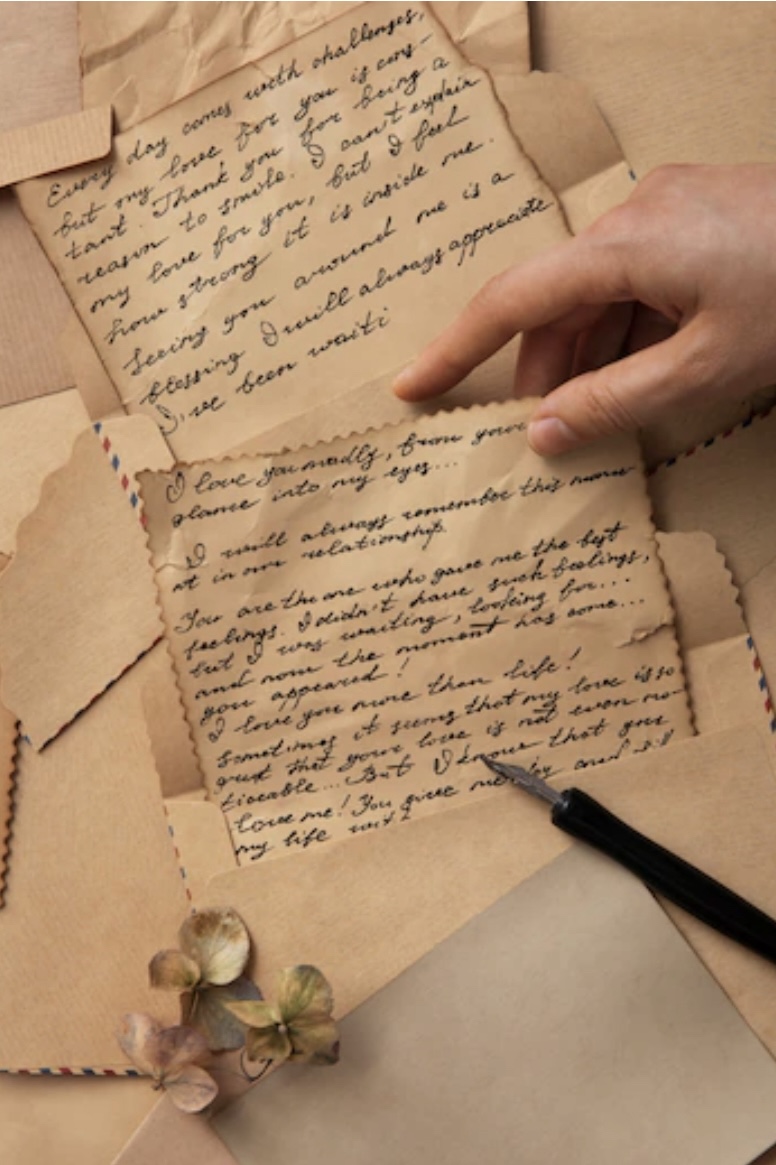 Every day comes with challenges,
but my love for you is cons-
tant. Thank you for being a
reason to smile. I can't explain
my love for you, but I feel
how strong it is inside me.
Seeing you around me is a
blessing I will always appreciate
I've been waiti
I love you madly, from your
glance into my eyes...
I will always remember this mome
nt in our relationship.
You are the one who gave me the best
feelings. I didn't have such feelings,
but I was waiting, looking for...
and now the moment has come...
you appeared!
I love you more than life!
Sometimes it seems that my love is so
great that your love is not even no-
ticeable... But I know that you
love me! You give me and
my life